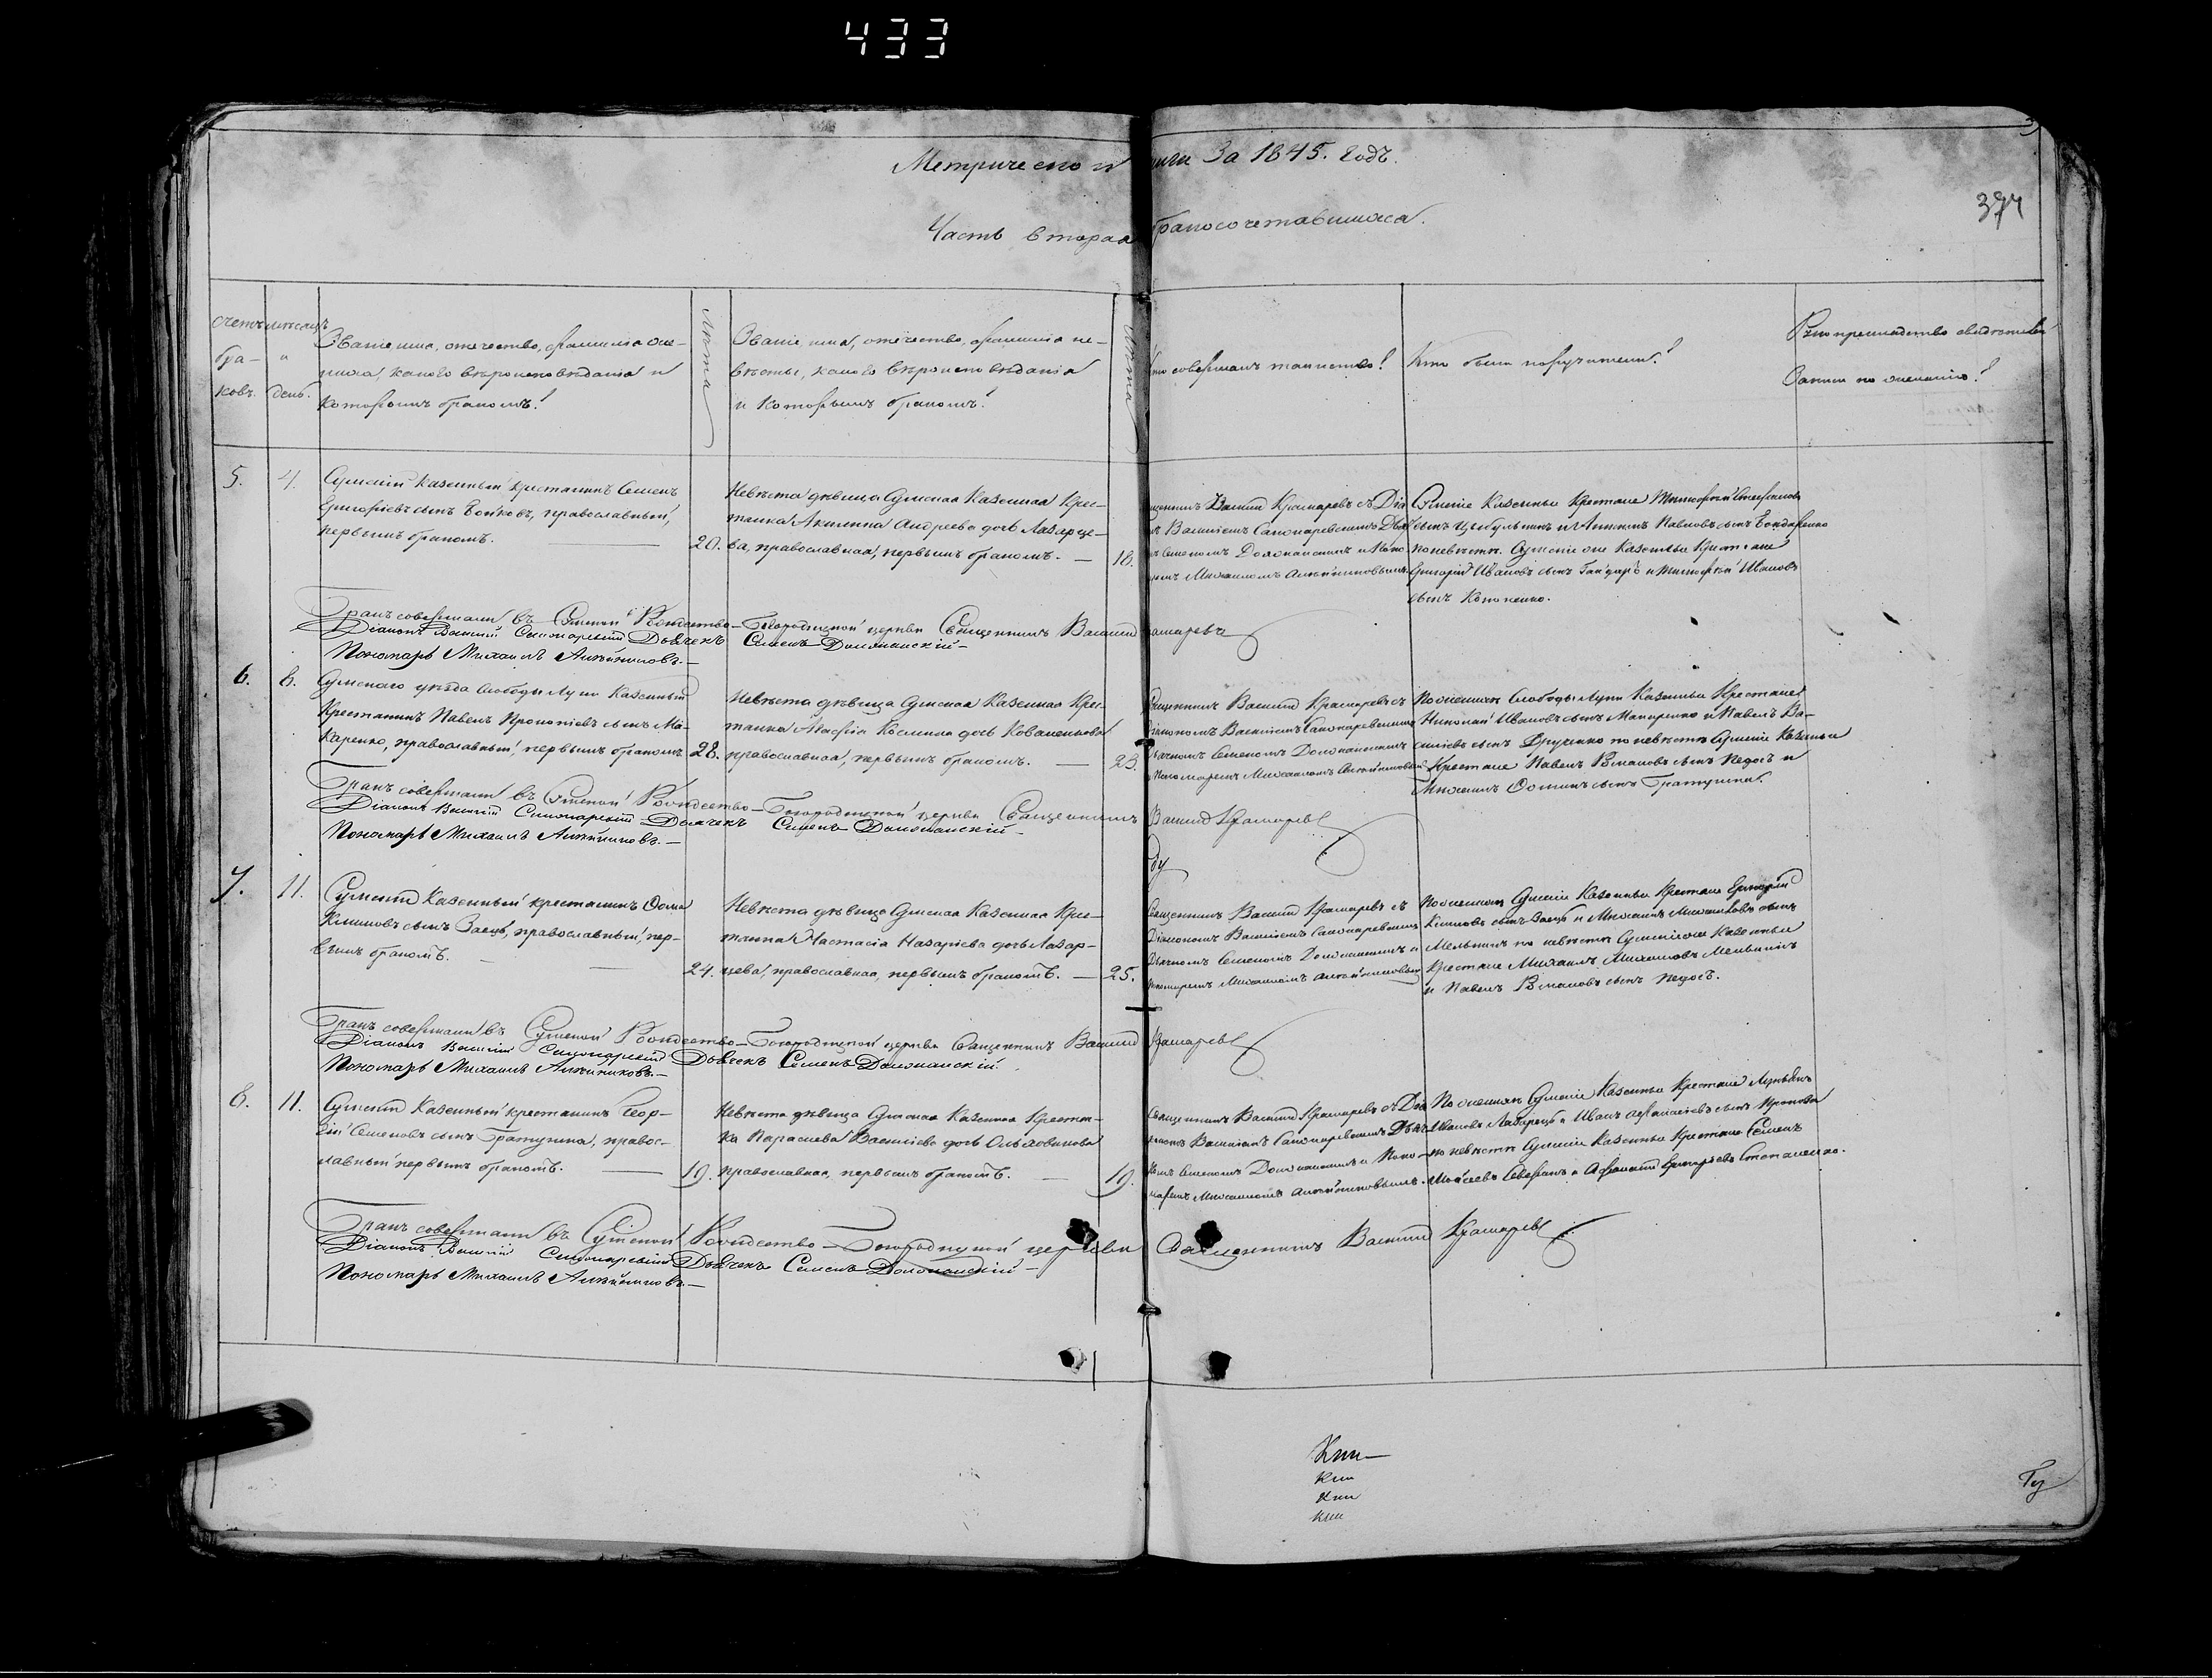 433
Метрической книги За 1845. годъ.
374
Часть вторая бракосочетавшихся.
Счетъ
бра-
ковъ.
мѣсяцъ
и
день.
Званіе, имя, отечество, фамилія же-
ниха, какого вѣроисповѣданія и
которымъ бракомъ?
Лѣта
Званіе, имя, отечество, фамилія не-
вѣсты, какого вѣроисповѣданія
и которымъ бракомъ?
Лѣта
Кто совершалъ таинство?
Кто были поручители?
Рукоприкладство свидѣтелей
Записи по желанію?
5.
4.
Сумскій казенный крестьянинъ Семенъ
Григоріевъ сынъ Бойковъ, православный,
первымъ бракомъ.
20.
Невѣста дѣвица Сумская казенная крес-
тьянка Акилина Андреева дочь Лазарце-
ва, православная, первымъ бракомъ. —
18.
Священникъ Василій Крамаревъ съ Діа
Василіемъ Сапонаревскимъ Дья
Семеномъ Доломанскимъ и Поно
Михаиломъ Алѣйниковымъ.
Сумскіе казенные крестьяне Тимофей Стефановъ
сынъ Цыбульникъ и Антонъ Павловъ сынъ Бондаренко
по невѣстѣ Сумскіе же казенные крестьяне
Григорій Ивановъ сынъ Гайдарь и Тимофей Ивановъ
сынъ Кононенко.
Бракъ совершали въ Сумской Рождество-Богородицкой церкви Священникъ Василій Крамаревъ
Діаконъ Василій Сапонарскій Дьячекъ Семенъ Доломанскій —
Пономарь Михаилъ Алѣйниковъ. —
6.
8.
Сумскаго уѣзда слободы Луки казенный
крестьянинъ Павелъ Прокопіевъ сынъ Ма-
каренко, православный, первымъ бракомъ
28.
Невѣста дѣвица Сумская казенная крес-
тьянка Косьмина дочь Коваленкова
православная, первымъ бракомъ. —
23.
Священникъ Василій Крамаревъ съ
Діакономъ Василіемъ Сапонаревскимъ
Дьячкомъ Семеномъ Доломанскимъ
Пономаремъ Михаиломъ Алѣйниковымъ
По женихѣ слободы Луки казенные крестьяне
Николай Ивановъ сынъ Макаренко и Павелъ Ва-
силіевъ сынъ Друченко по невѣстѣ Сумскіе казенные
крестьяне Павелъ Романовъ сынъ Недосъ и
Михаилъ Фоминъ сынъ Братушка.
Бракъ совершали въ Сумской Рождество-Богородицкой церкви Священникъ Василій Крамаревъ
Діаконъ Василій Сапонарскій Дьячекъ Семенъ Доломанскій —
Пономарь Михаилъ Алѣйниковъ. —
7.
11.
Сумскій казенный крестьянинъ Фома
Климовъ сынъ Заецъ, православный, пер-
вымъ бракомъ. —
24.
Невѣста дѣвица Сумская казенная крес-
тьянка Настасія Назаріева дочь Лазар-
цева, православная, первымъ бракомъ. —
25.
Священникъ Василій Крамаревъ съ
Діакономъ Василіемъ Сапонаревскимъ
Дьячкомъ Семеномъ Доломанскимъ и
Пономаремъ Михаиломъ Алѣйниковымъ
По женихѣ Сумскіе казенные крестьяне Григорій
Климовъ сынъ Заецъ и Михаилъ Михайловъ сынъ
Мельникъ по невѣстѣ Сумскіе же казенные
крестьяне Михаилъ Михайловъ Мельникъ
и Павелъ Романовъ сынъ Недосъ.
Бракъ совершали въ Сумской Рождество-Богородицкой церкви Священникъ Василій Крамаревъ
Діаконъ Василій Сапонарскій Дьячекъ Семенъ Доломанскій.
Пономарь Михаилъ Алѣйниковъ. —
8.
11.
Сумскій казенный крестьянинъ Геор-
гій Семеновъ сынъ Братушка, правос-
лавный первымъ бракомъ. —
19.
Невѣста дѣвица Сумская казенная крестьян-
ка Параскева Василіева дочь Ольховикова
православная, первымъ бракомъ. —
19.
Священникъ Василій Крамаревъ съ Діа
кономъ Василіемъ Сапонаревскимъ Дьяч
комъ Семеномъ Доломанскимъ и Поно
маремъ Михаиломъ Алѣйниковымъ.
По женихѣ Сумскіе казенные крестьяне Лукьянъ
Ивановъ Лазарецъ и Иванъ Афанасіевъ сынъ
по невѣстѣ Сумскіе казенные крестьяне Семенъ
Моисеевъ и Афанасій Григорьевъ Степаненко.
Бракъ совершали въ Сумской Рождество-Богородицкой церкви Священникъ Василій Крамаревъ
Діаконъ Василій Сапонарскій Дьячекъ Семенъ Доломанскій —
Пономарь Михаилъ Алѣйниковъ —
Кни—
Кни
Кни
кни